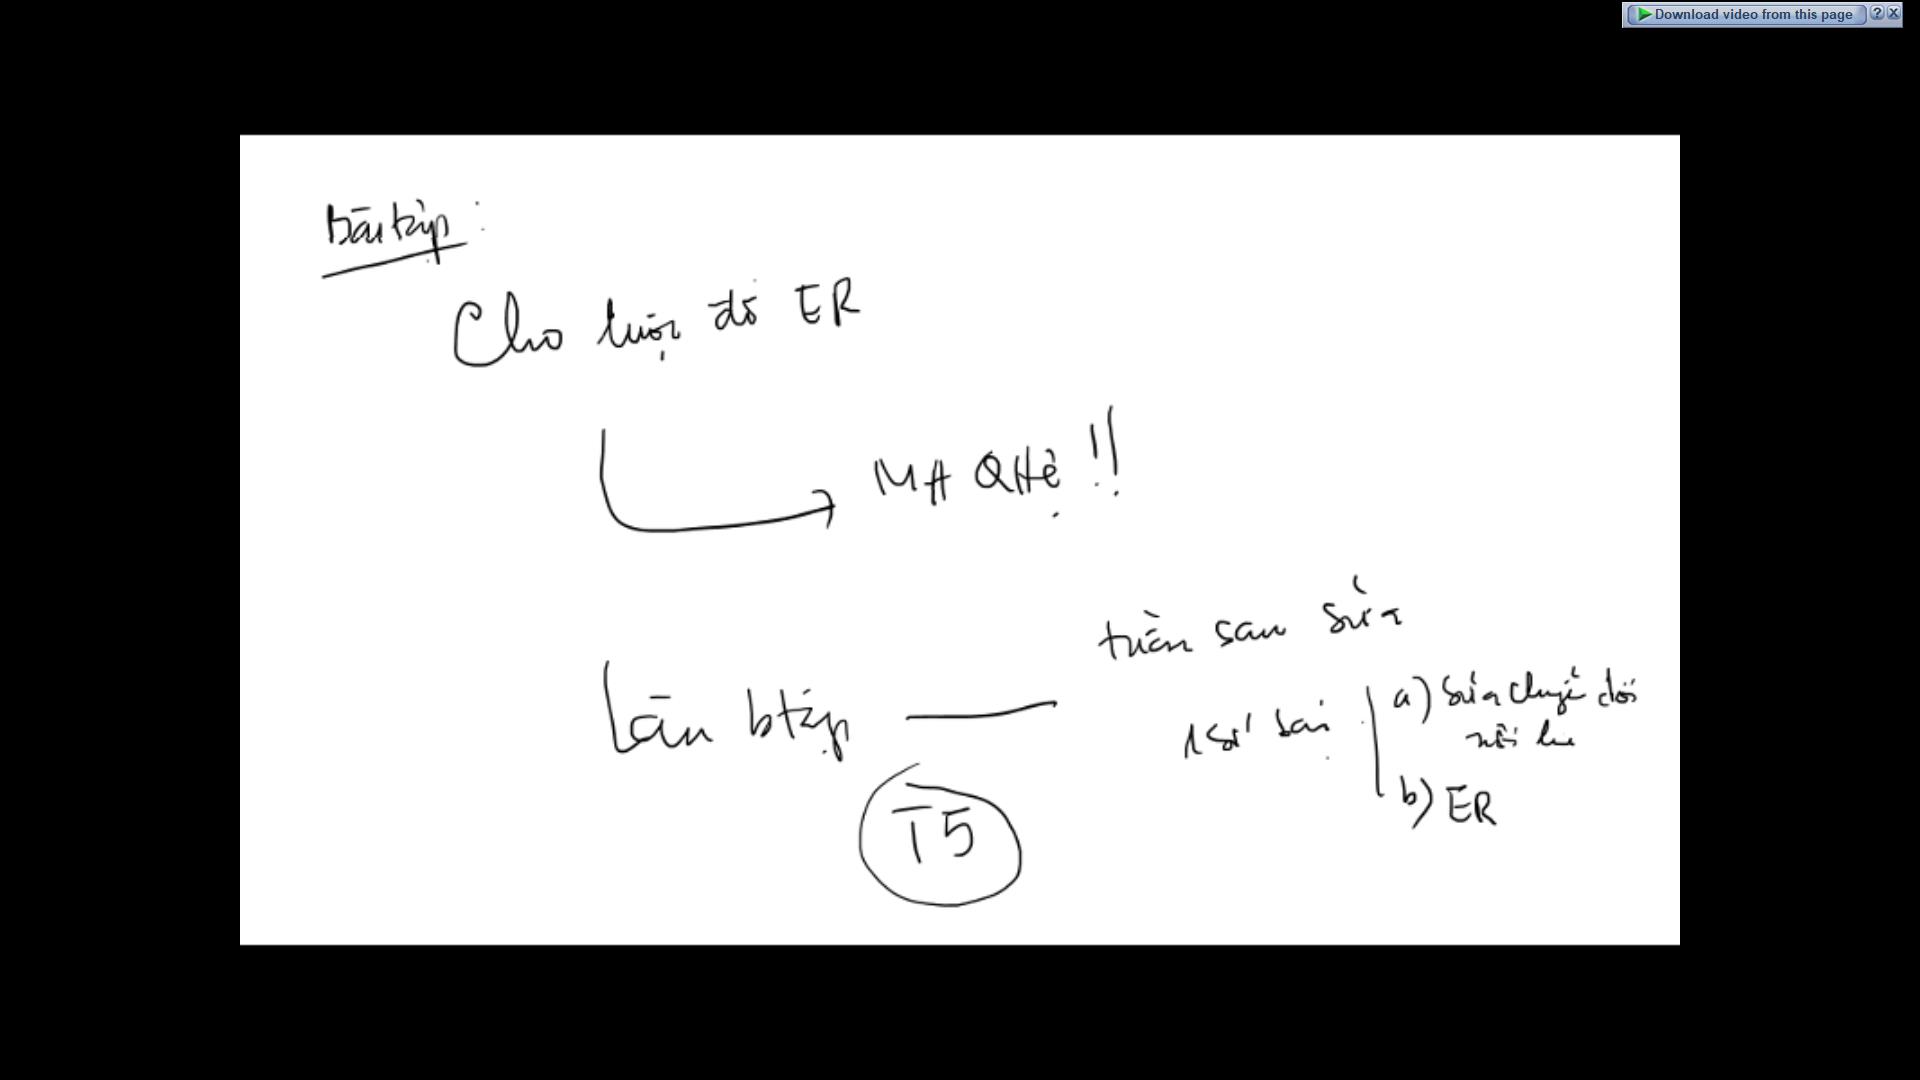 Download video from this page
Bài tập:
Cho lược đồ ER
MH QHệ !!
Làm btập
tuần sau sửa
1 số bài
a) sửa chuyển đổi
b) ER
T5